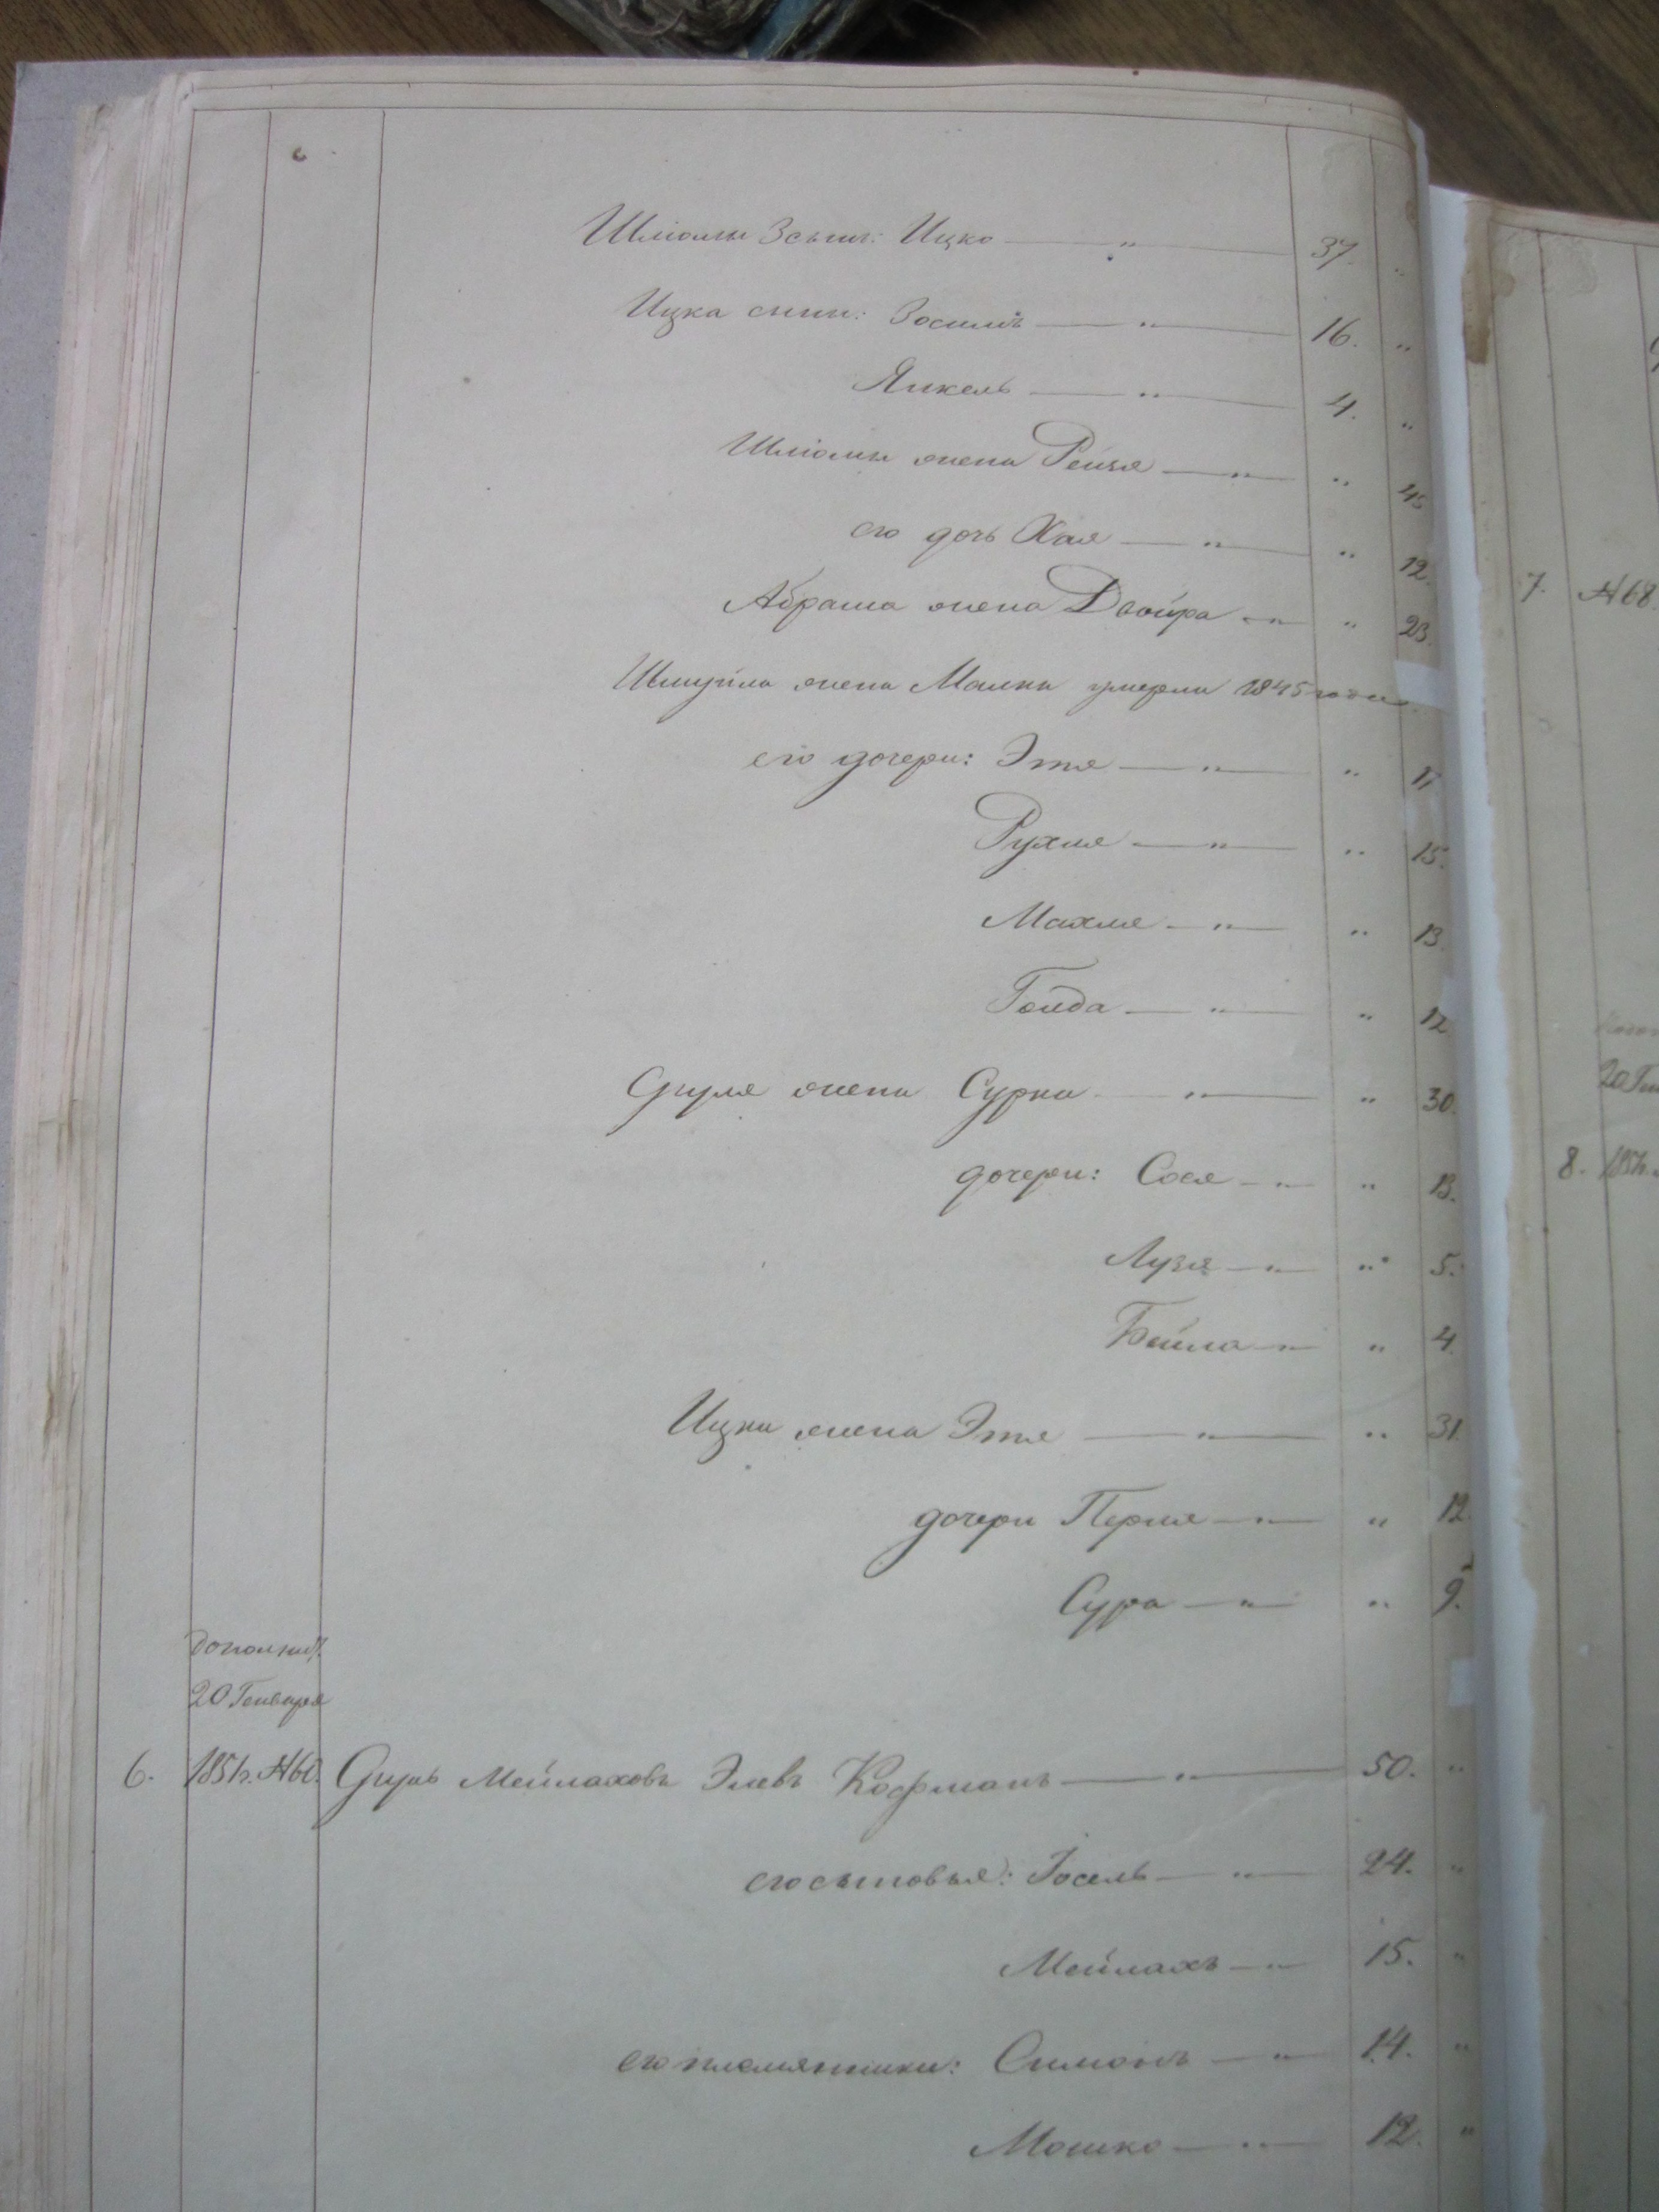 Шліомы 3 сынъ: Ицко — " — 37. "
Ицка сынъ: Зосимъ — " — 16. "
Янкель — " — 4. "
Шліомы жена Рейзя — " — " 45
его дочь Хая — " — " 12.
Абрама жена Двойра — " — " 23.
Шмуйла жена Малка умерла 1845 года
его дочери: Этя — " — " 17
Рухля — " — " 15.
Махля — " — " 13.
Гольда — " — " 12
Сруля жена Сурка — " — " 30.
дочери: Сося — " — " 13.
Лузя — " — " 5.
Бейла — " — " 4.
Ицка жена Этя — " — " 31.
дочери Перля — " — " 12.
Сура — " — " 9.
дополнит.
20 Генваря
6. 1851г. №60. Сруль Мейлаховъ Элевъ Кофманъ — " — 50. "
его сыновья: Іосель — " — 24. "
Мейлахъ — " — 15. "
его племянники: Симонъ — " — 14. "
Мошко — " — 12. "
7. №68.
20 Ген
8. 1851г.